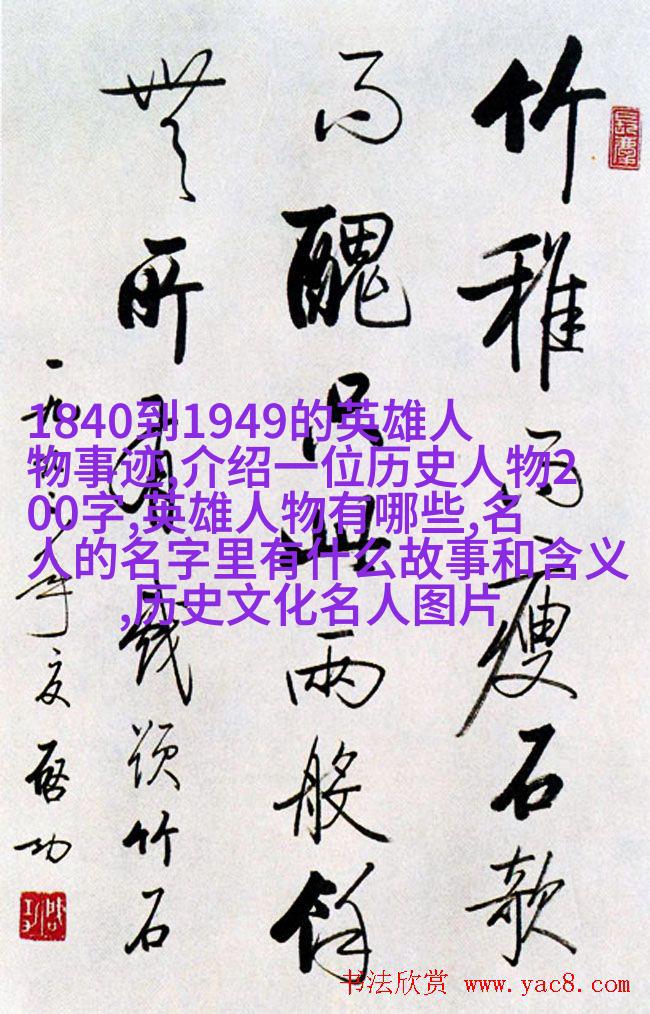 竹稚而瘦石欹
而醜只此兩般餘
無所有 戲題竹石
一九年夏 啓功
1840到1949的英雄人
物事迹,介绍一位历史人物2
00字,英雄人物有哪些,名
人的名字里有什么故事和含义
,历史文化名人图片
书法欣赏 www.yac8.com